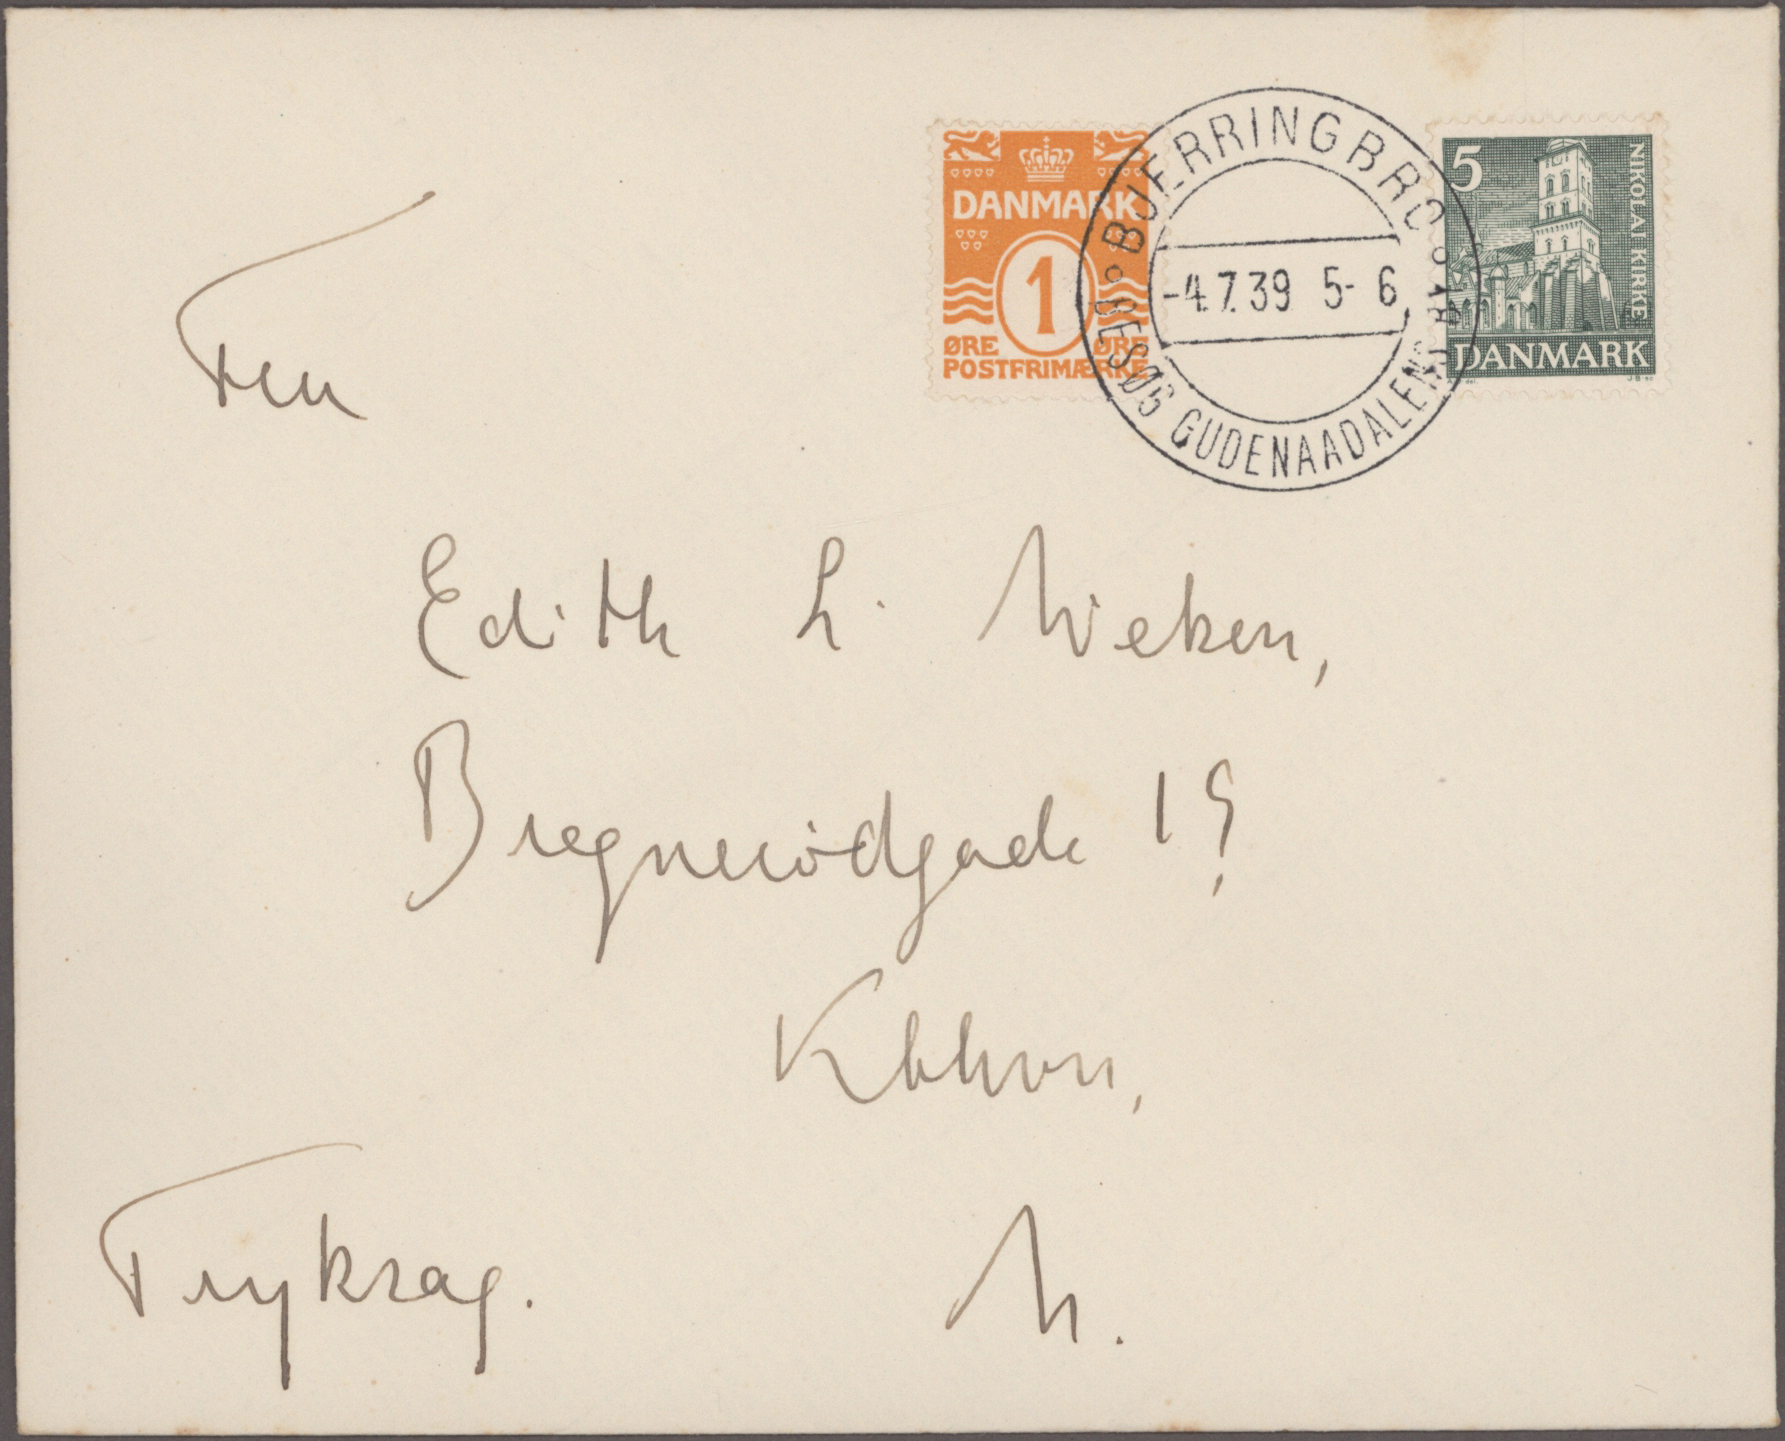 DANMARK
1
ØRE ØRE
POSTFRIMÆRKE
BJERRINGBRO
-4.7.39 5-6
BESØG GUDENAADALENS BY
5
NIKOLAI KIRKE
DANMARK
Edith L.
Bregnerødgade 19,
Kbhvn,
Tryksag.
N.